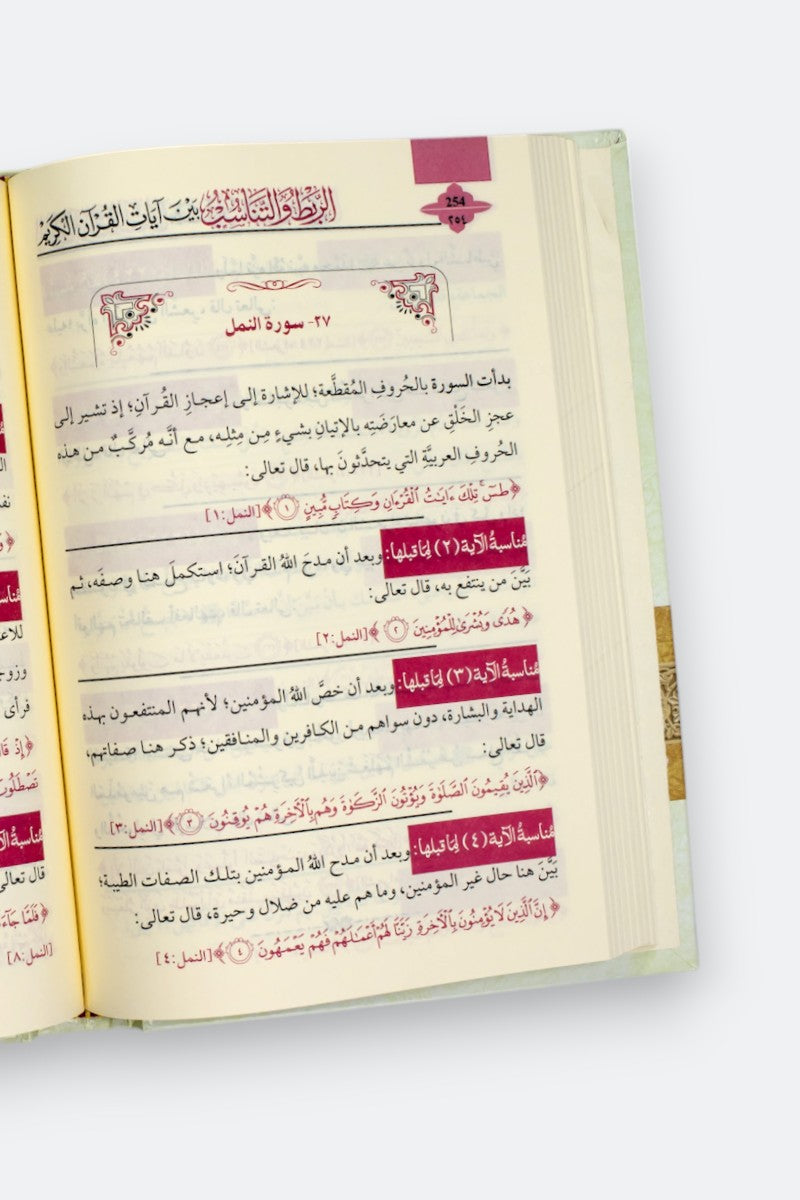 254
٢٥٤
الرَّبْطُ وَالتَّنَاسُبُ بَيْنَ آيَاتِ القُرْآنِ الكَرِيمِ
٢٧- سورة النمل
بدأت السورة بالحُروفِ المُقطَّعة؛ للإشارة إلى إعجازِ القُرآنِ؛ إذ تشير إلى
عجزِ الخَلْقِ عن معارَضَتِه بالإتيانِ بشيءٍ مِن مِثلِه، مع أنَّه مُركَّبٌ من هذه
الحُروفِ العربيَّةِ التي يتحدَّثونَ بها، قال تعالى:
﴿طسٓۚ تِلۡكَ ءَايَٰتُ ٱلۡقُرۡءَانِ وَكِتَابٖ مُّبِينٍ ١﴾ [النمل:١]
مُناسبةُ الآية (٢) لِمَا قبلها: وبعد أن مدحَ اللهُ القرآنَ؛ استكملَ هنا وصفَه، ثم
بيَّنَ من ينتفع به، قال تعالى:
﴿هُدٗى وَبُشۡرَىٰ لِلۡمُؤۡمِنِينَ ٢﴾ [النمل:٢]
مُناسبةُ الآية (٣) لِمَا قبلها: وبعد أن خصَّ اللهُ المؤمنين؛ لأنهم المنتفعون بهذه
الهداية والبشارة، دون سواهم من الكافرين والمنافقين؛ ذكر هنا صفاتهم،
قال تعالى:
﴿ٱلَّذِينَ يُقِيمُونَ ٱلصَّلَوٰةَ وَيُؤۡتُونَ ٱلزَّكَوٰةَ وَهُم بِٱلۡأٓخِرَةِ هُمۡ يُوقِنُونَ ٣﴾ [النمل:٣]
مُناسبةُ الآية (٤) لِمَا قبلها: وبعد أن مدح اللهُ المؤمنين بتلك الصفات الطيبة؛
بيَّنَ هنا حال غير المؤمنين، وما هم عليه من ضلال وحيرة، قال تعالى:
﴿إِنَّ ٱلَّذِينَ لَا يُؤۡمِنُونَ بِٱلۡأٓخِرَةِ زَيَّنَّا لَهُمۡ أَعۡمَٰلَهُمۡ فَهُمۡ يَعۡمَهُونَ ٤﴾ [النمل:٤]
للاع
وزوج
فرأى
﴿إِذۡ قَالَ
تَصۡطَلُونَ
مُناسبةُ الآ
قال تعالى
﴿فَلَمَّا جَآءَ
[النمل:٨]